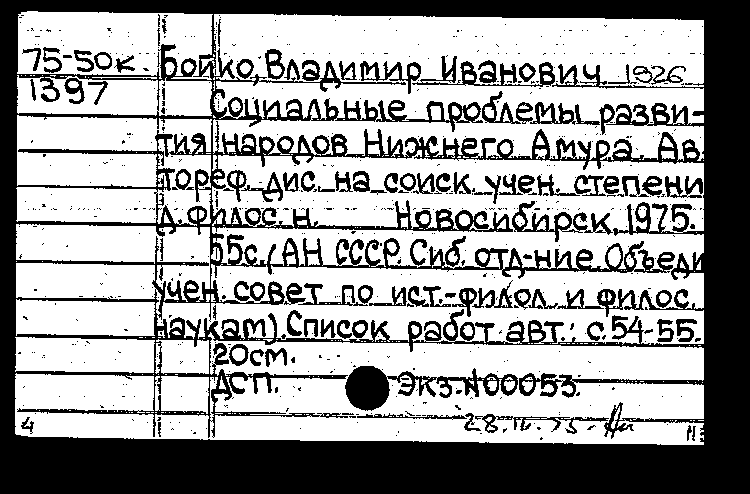 75-50к. Бойко, Владимир Иванович 1926
1397 Социальные проблемы разви-
тия народов Нижнего Амура. Ав
тореф. дис. на соиск. учен. степени
д. филос. н. Новосибирск, 1975.
55с. (АН СССР. Сиб. отд-ние. Объеди
учен. совет по ист.-филол. и филос.
наукам). Список работ авт.: с. 54-55.
20см.
ДСП. Экз. N00053.
4